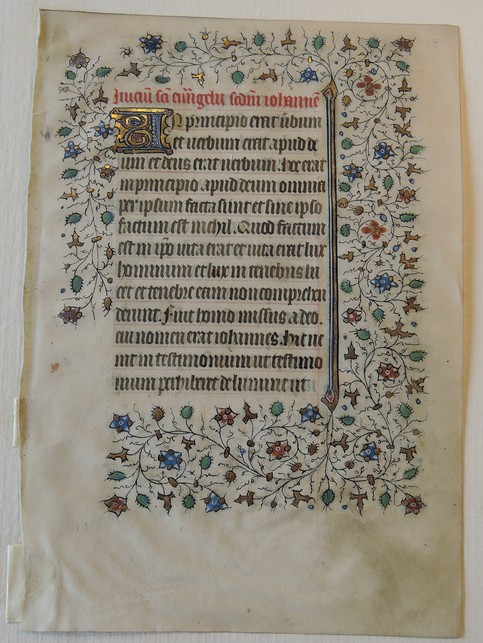 Iniciũ sci̅ euãgelii scdm̃ iohannẽ
In principio erat ũbum
et uerbum erat apud de
um et deus erat uerbum. hoc erat
in principio apud deum omnia
per ipsum facta sunt et sine ipso
factum est nichil. Quod factum
est in ip̃o uita erat et uita erat lux
hominum et lux in tenebris lu
cet et tenebre eam non comprehen
derunt. Fuit homo missus a deo.
cui nomen erat iohannes. hic ue
nit in testimonium ut testimo
nium perhiberet de lumine ut